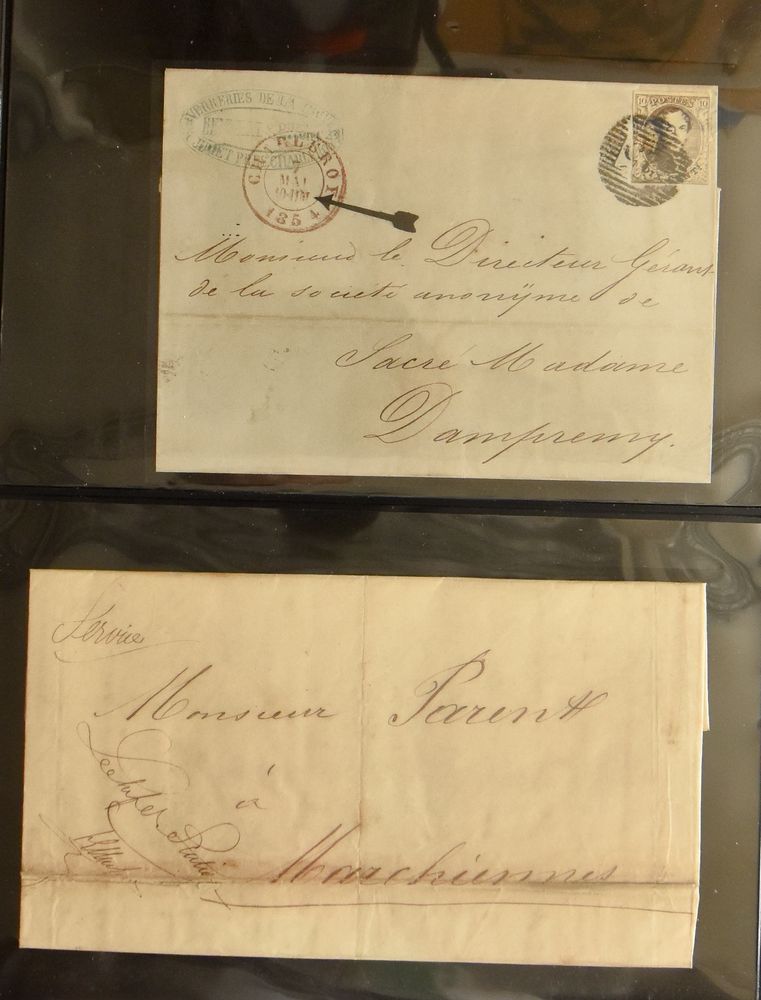 VERRERIES DE LA
CHARLEROI
7
MAI
1854
10 POSTES 10
Monsieur le Directeur Gérant
de la société anonÿme de
Sacré Madame
Dampremy.
Service
Monsieur Parent
à
Marchiennes